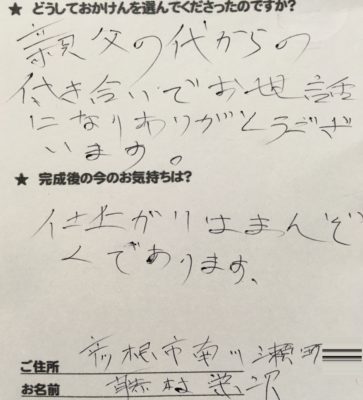 ★ どうしておかけんを選んでくださったのですか?
親父の代からの
付き合いでお世話
になりありがとうござ
います。
★ 完成後の今のお気持ちは?
仕上がりはまんぞ
くであります、
ご住所 彦根市南川瀬町
お名前 藤村栄次